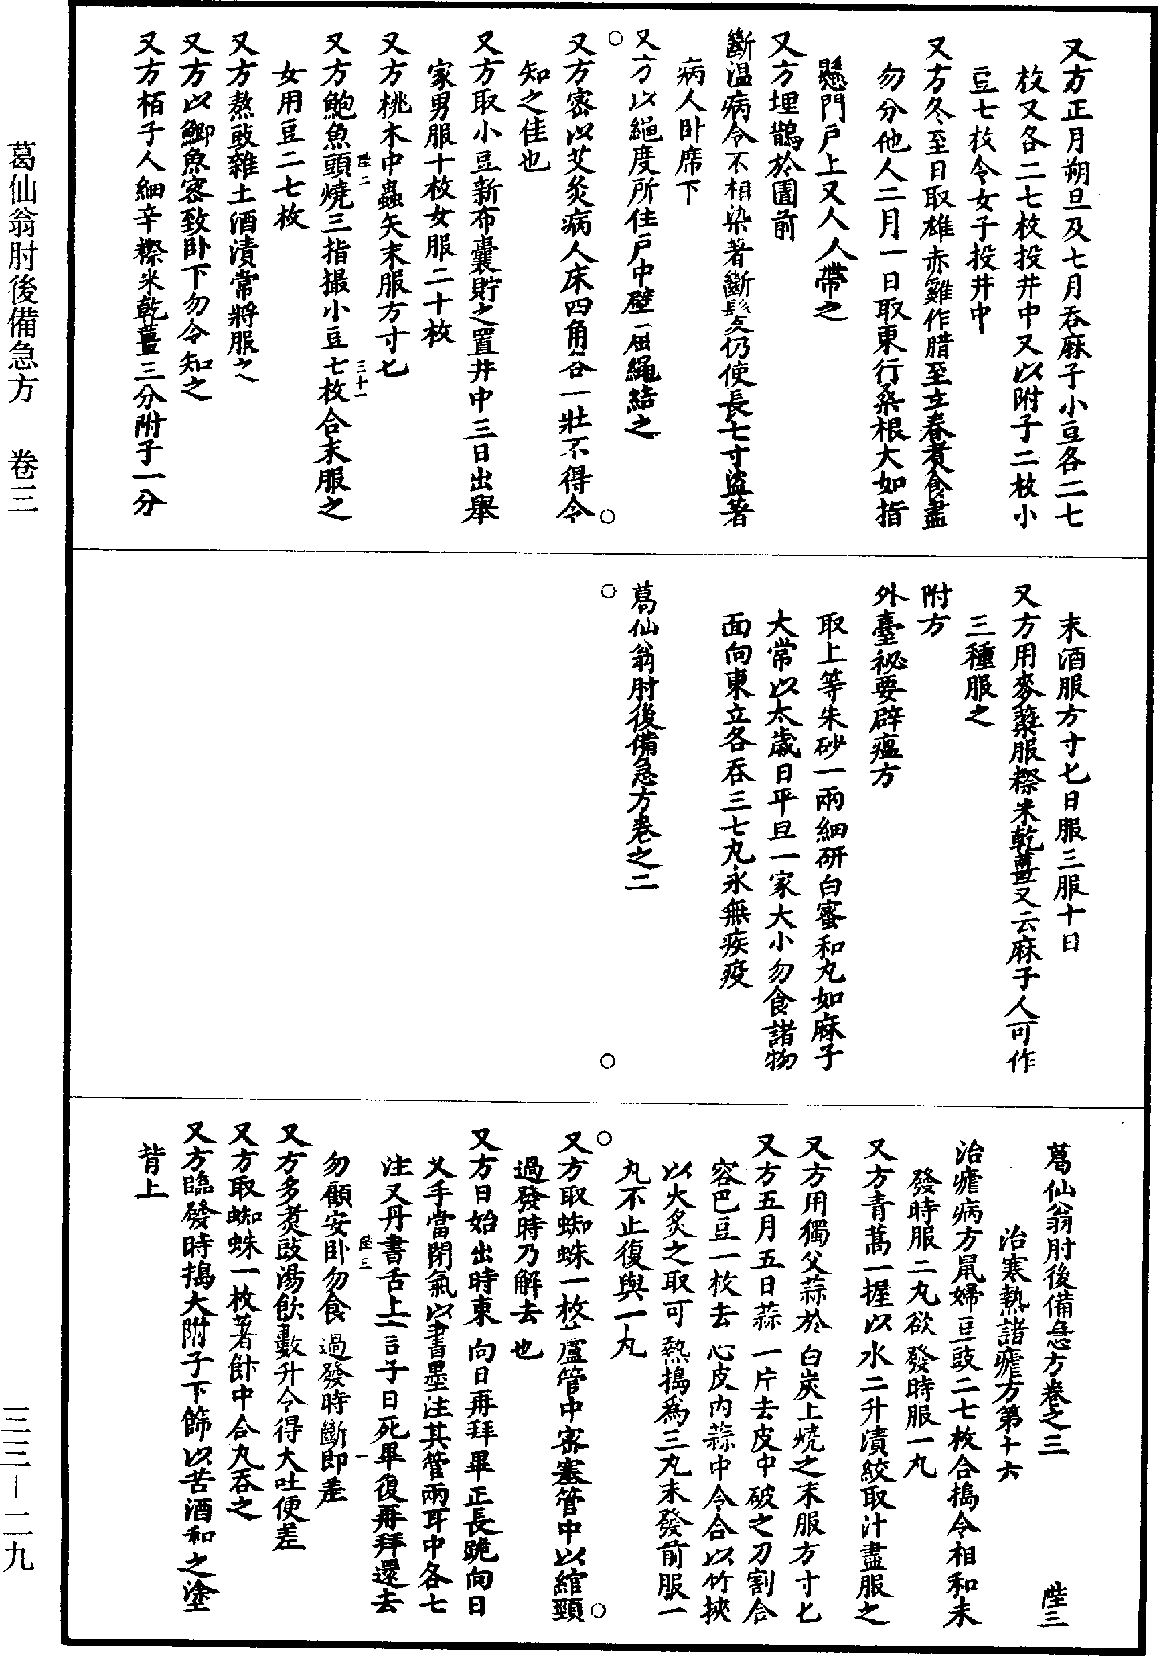 又方正月朔旦及七月吞麻子小豆各二七
枚又各二七枚投井中又以附子二枚小
豆七枚令女子投井中
又方冬至日取雄赤雞作腊至立春煮食盡
勿分他人二月一日取東行桑根大如指
懸門戶上又人人帶之
又方埋鵲於圊前
斷溫病令不相染著斷髮仍使長七寸盜著
病人臥席下
又方以繩度所住戶中壁屈繩結之
又方密以艾灸病人床四角各一壯不得令
知之佳也
又方取小豆新布囊貯之置井中三日出舉
家男服十枚女服二十枚
又方桃木中蟲矢末服方寸匕
又方鮑魚頭燒三指撮小豆七枚合末服之
陛二
三十一
女用豆二七枚
又方熬豉雜土酒漬常將服之
又方以鯽魚密致臥下勿令知之
又方栢子人細辛穄米乾薑三分附子一分
末酒服方寸匕日服三服十日
又方用麥蘗服穄米乾薑又云麻子人可作
三種服之
附方
外臺祕要辟瘟方
取上等朱砂一兩細研白蜜和丸如麻子
大常以太歲日平旦一家大小勿食諸物
面向東立各吞三七丸永無疾疫
葛仙翁肘後備急方卷之二
葛仙翁肘後備急方卷之三
陛三
治寒熱諸瘧方第十六
治瘧病方鼠婦豆豉二七枚合搗令相和未
發時服二丸欲發時服一丸
又方青蒿一握以水二升漬絞取汁盡服之
又方用獨父蒜於白炭上燒之末服方寸匕
又方五月五日蒜一片去皮中破之刀割合
容巴豆一枚去心皮內蒜中令合以竹挾
以火炙之取可熱搗為三丸未發前服一
丸不止復與一丸
又方取蜘蛛一枚蘆管中密塞管中以綰頸
過發時乃解去也
又方日始出時東向日再拜畢正長跪向日
叉手當閉氣以書墨注其管兩耳中各七
注又丹書舌上言子日死畢復再拜還去
陛三
一
勿顧安臥勿食過發時斷即差
又方多煮豉湯飲數升令得大吐便差
又方取蜘蛛一枚著飰中合丸吞之
又方臨發時搗大附子下篩以苦酒和之塗
背上
葛仙翁肘後備急方 卷三
三三－二九